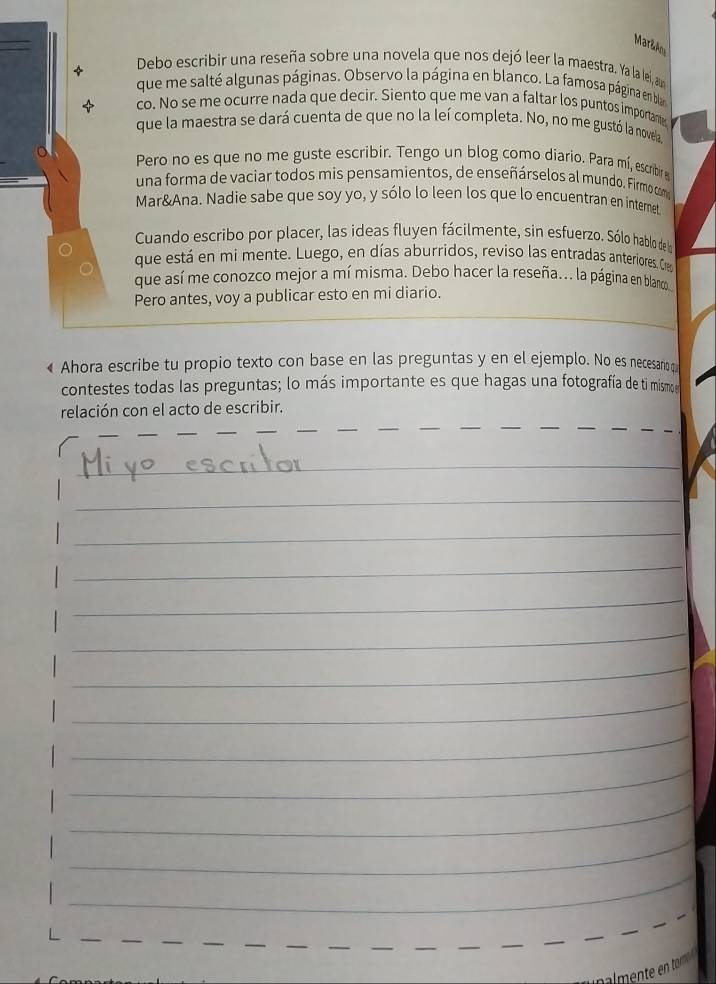 Mar&Ana
Debo escribir una reseña sobre una novela que nos dejó leer la maestra. Ya la leí, aun
que me salté algunas páginas. Observo la página en blanco. La famosa página en blan
co. No se me ocurre nada que decir. Siento que me van a faltar los puntos importantes
que la maestra se dará cuenta de que no la leí completa. No, no me gustó la novela.
Pero no es que no me guste escribir. Tengo un blog como diario. Para mí, escribir es
una forma de vaciar todos mis pensamientos, de enseñárselos al mundo. Firmo como
Mar&Ana. Nadie sabe que soy yo, y sólo lo leen los que lo encuentran en internet.
Cuando escribo por placer, las ideas fluyen fácilmente, sin esfuerzo. Sólo hablo de lo
que está en mi mente. Luego, en días aburridos, reviso las entradas anteriores. Creo
que así me conozco mejor a mí misma. Debo hacer la reseña... la página en blanco...
Pero antes, voy a publicar esto en mi diario.
Ahora escribe tu propio texto con base en las preguntas y en el ejemplo. No es necesario qu
contestes todas las preguntas; lo más importante es que hagas una fotografía de ti mismo e
relación con el acto de escribir.
Mi yo escritor
en torno